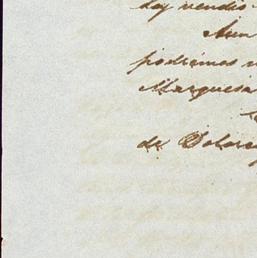 hoy vendió
Aun
podríamos
Marquesa
de Dolores